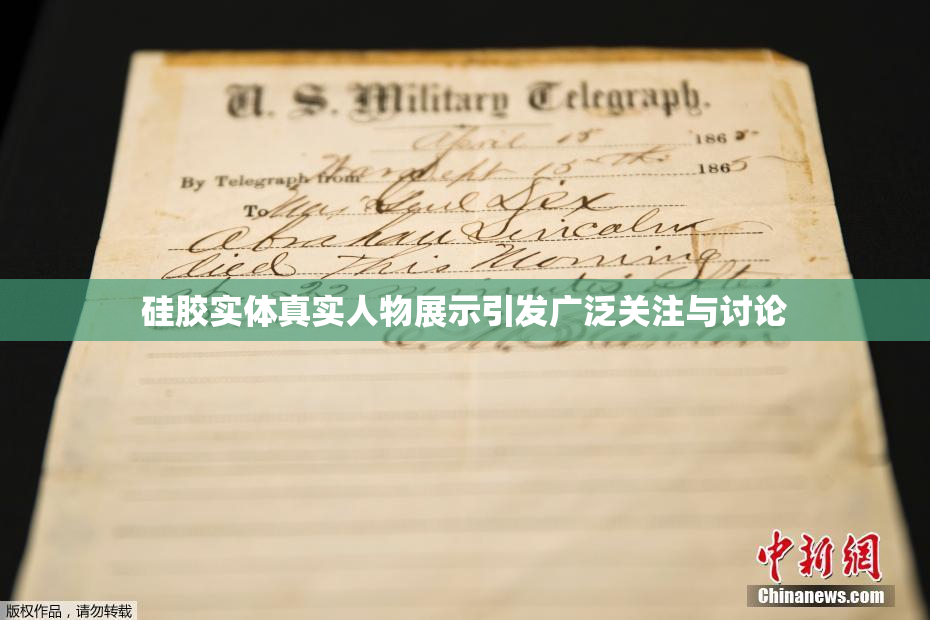 U. S. Military Telegraph.
April 15 1865
By Telegraph from War Dept 15th 1865
To Maj Genl Dix
Abraham Lincoln
died This Morning
at 22 minutes after
硅胶实体真实人物展示引发广泛关注与讨论
E. M. Stanton
中新网
Chinanews.com
版权作品，请勿转载